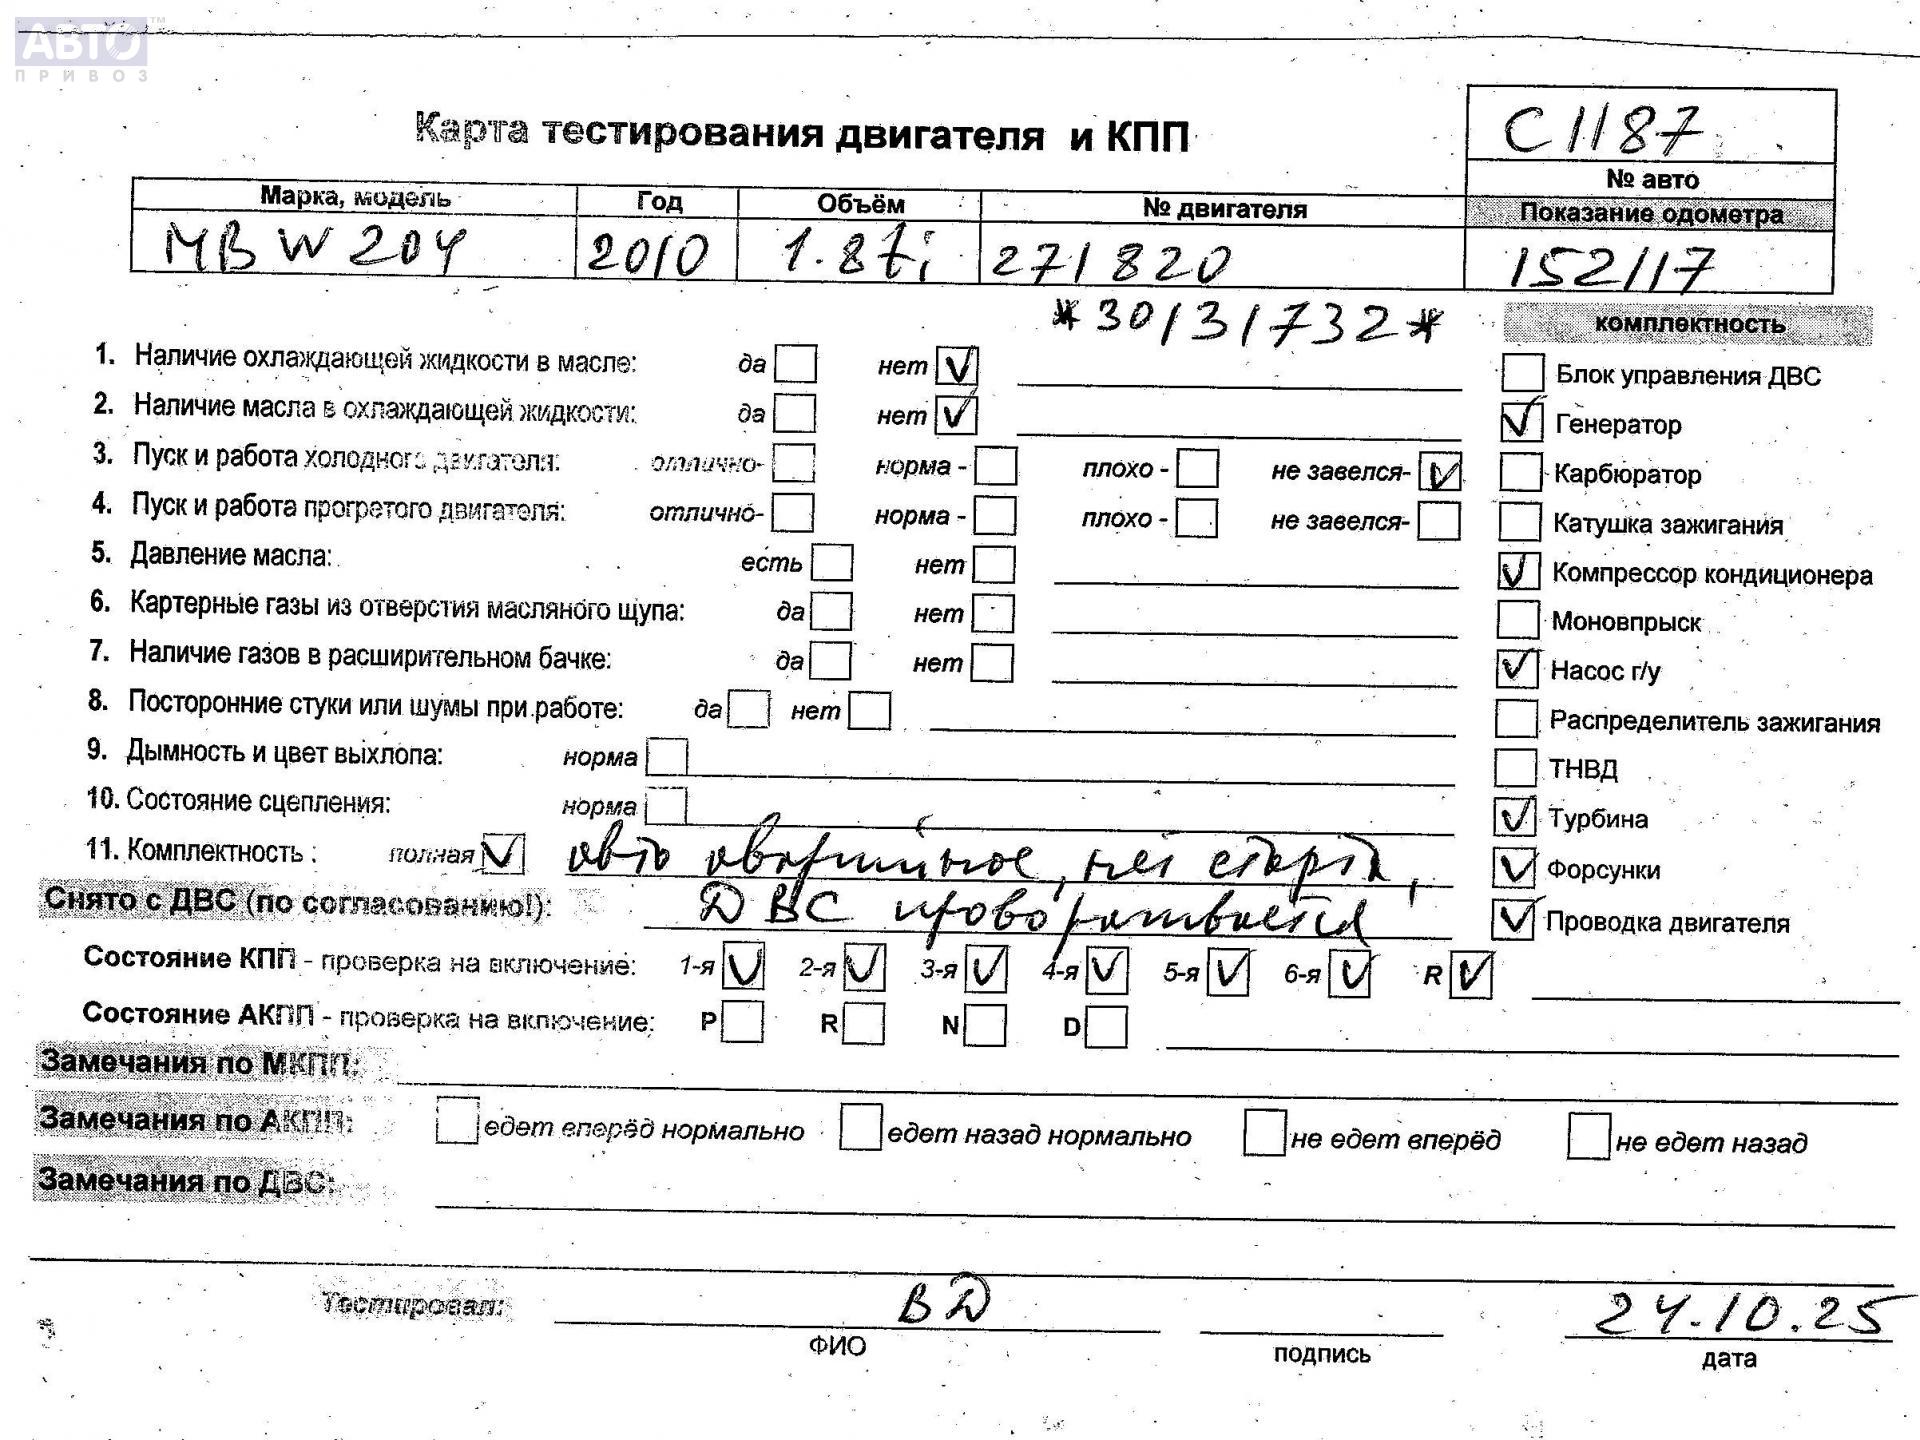 АВТО™
ПРИВОЗ
Карта тестирования двигателя и КПП
C1187
№ авто
Марка, модель Год Объём № двигателя Показание одометра
MB W204 2010 1.8Ti 271820 152117
*30131732*
комплектность
1. Наличие охлаждающей жидкости в масле: да нет ✓
Блок управления ДВС
2. Наличие масла в охлаждающей жидкости: да нет ✓
✓ Генератор
3. Пуск и работа холодного двигателя: отлично- норма - плохо - не завелся- ✓
Карбюратор
4. Пуск и работа прогретого двигателя: отлично- норма - плохо - не завелся-
Катушка зажигания
5. Давление масла: есть нет
✓ Компрессор кондиционера
6. Картерные газы из отверстия масляного щупа: да нет
Моновпрыск
7. Наличие газов в расширительном бачке: да нет
✓ Насос г/у
8. Посторонние стуки или шумы при работе: да нет
Распределитель зажигания
9. Дымность и цвет выхлопа: норма
ТНВД
10. Состояние сцепления: норма
✓ Турбина
11. Комплектность : полная ✓ авто аварийное, нет старта,
✓ Форсунки
Снято с ДВС (по согласованию!): ДВС проворачивается
✓ Проводка двигателя
Состояние КПП - проверка на включение: 1-я ✓ 2-я ✓ 3-я ✓ 4-я ✓ 5-я ✓ 6-я ✓ R ✓
Состояние АКПП - проверка на включение: P R N D
Замечания по МКПП:
Замечания по АКПП: едет вперёд нормально едет назад нормально не едет вперёд не едет назад
Замечания по ДВС:
Тестировал: ВД 24.10.25
ФИО подпись дата